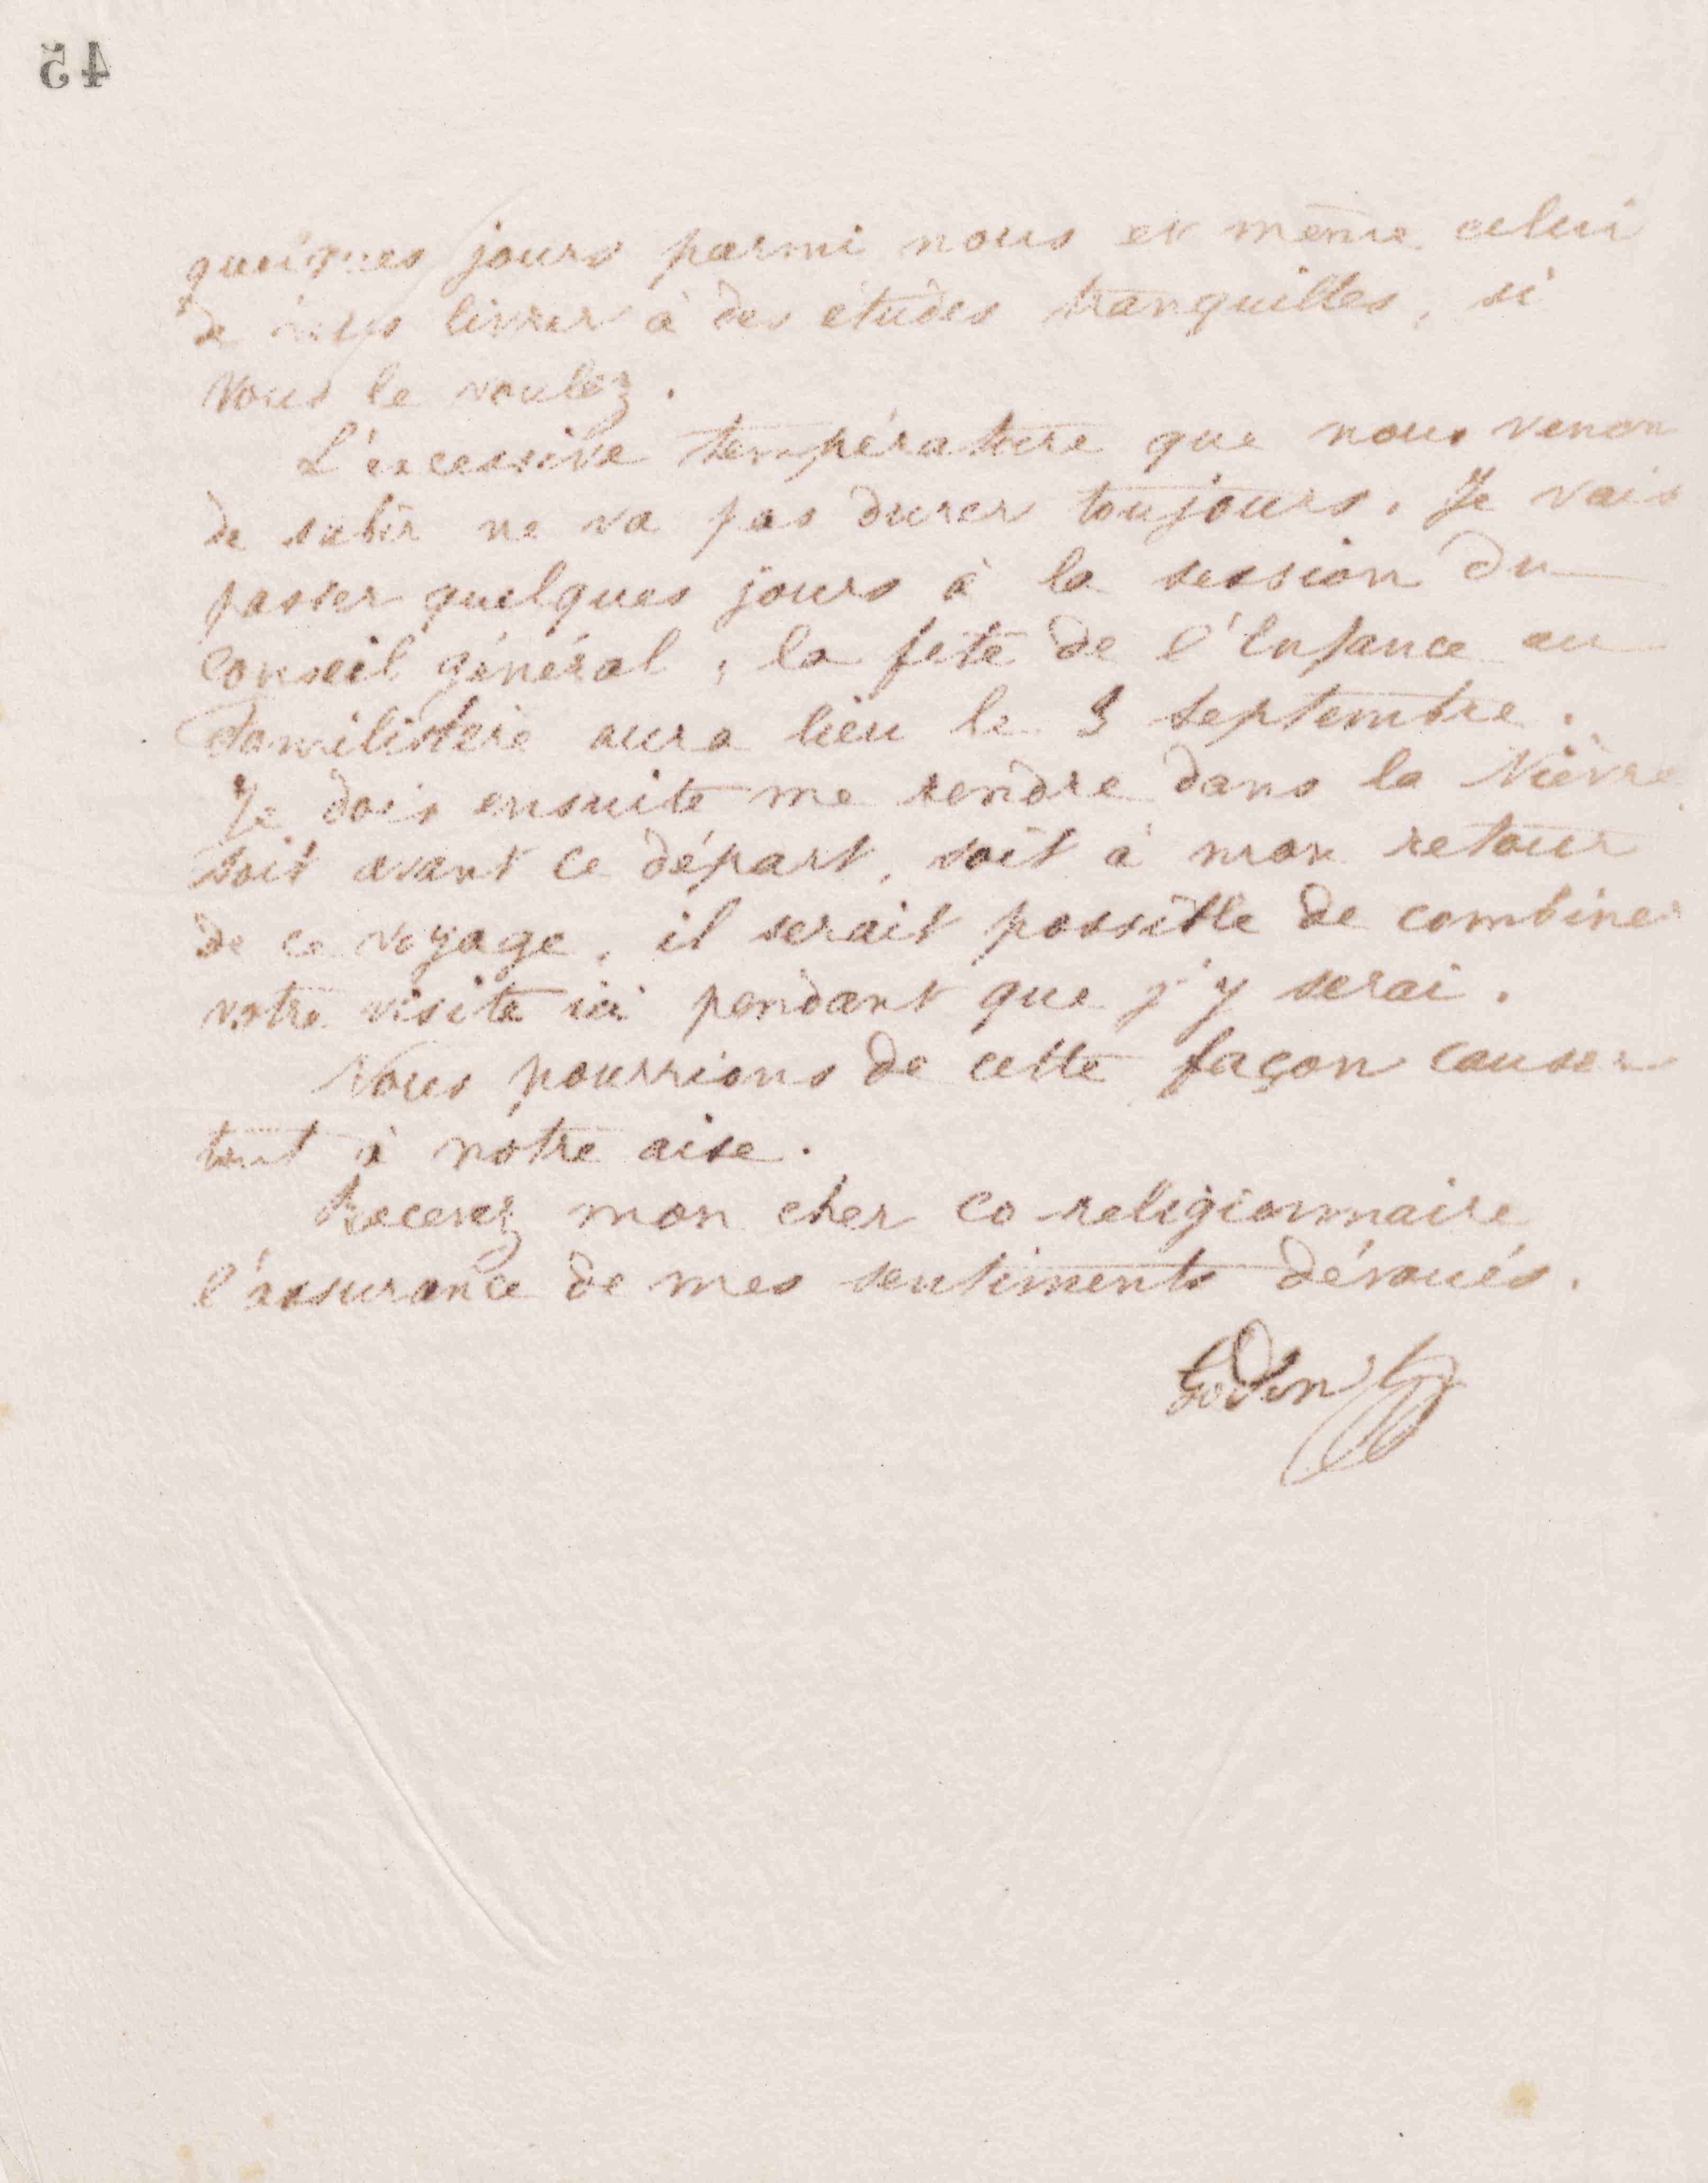 45
quelques jours parmi nous et même celui
de vous livrer à des études tranquilles, si
vous le voulez.
L'excessive température que nous venon
de subir ne va pas durer toujours. Je vais
passer quelques jours à la session du
conseil général, la fête de l'Enfance au
Familistère aura lieu le 3 septembre.
Je dois ensuite me rendre dans la Nièvre
soit avant ce départ, soit à mon retour
de ce voyage, il serait possible de combiner
votre visite ici pendant que j'y serai.
Nous pourrions de cette façon causer
tout à notre aise.
Recevez mon cher co-religionnaire
l'assurance de mes sentiments dévoués.
Godin